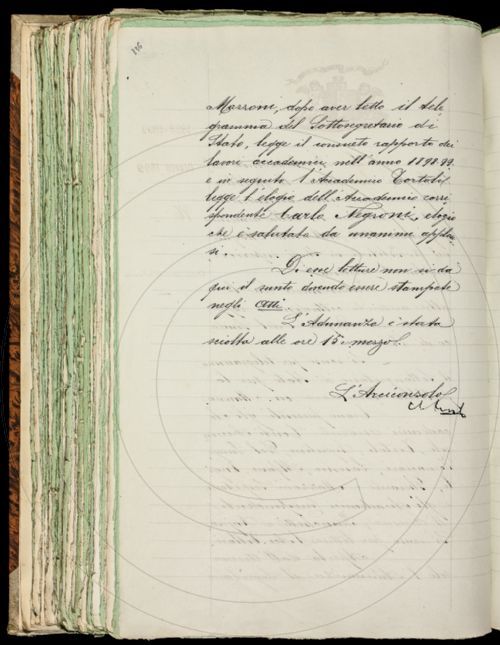 Marroni, dopo aver letto il tele
gramma del Sottosegretario di
Stato, legge il consueto rapporto dei
lavori accademici nell'anno 1898-99
e in seguito l'Accademico Tortoli
legge l'elogio dell'Accademico corri
spondente Carlo Negroni, elogio
che è salutato da unanime applau
si.
Di esse letture non si dà
qui il sunto dovendo essere stampate
negli Atti.
L'Adunanza è stata
sciolta alle ore 15 e mezzo.
L'Arciconsolo